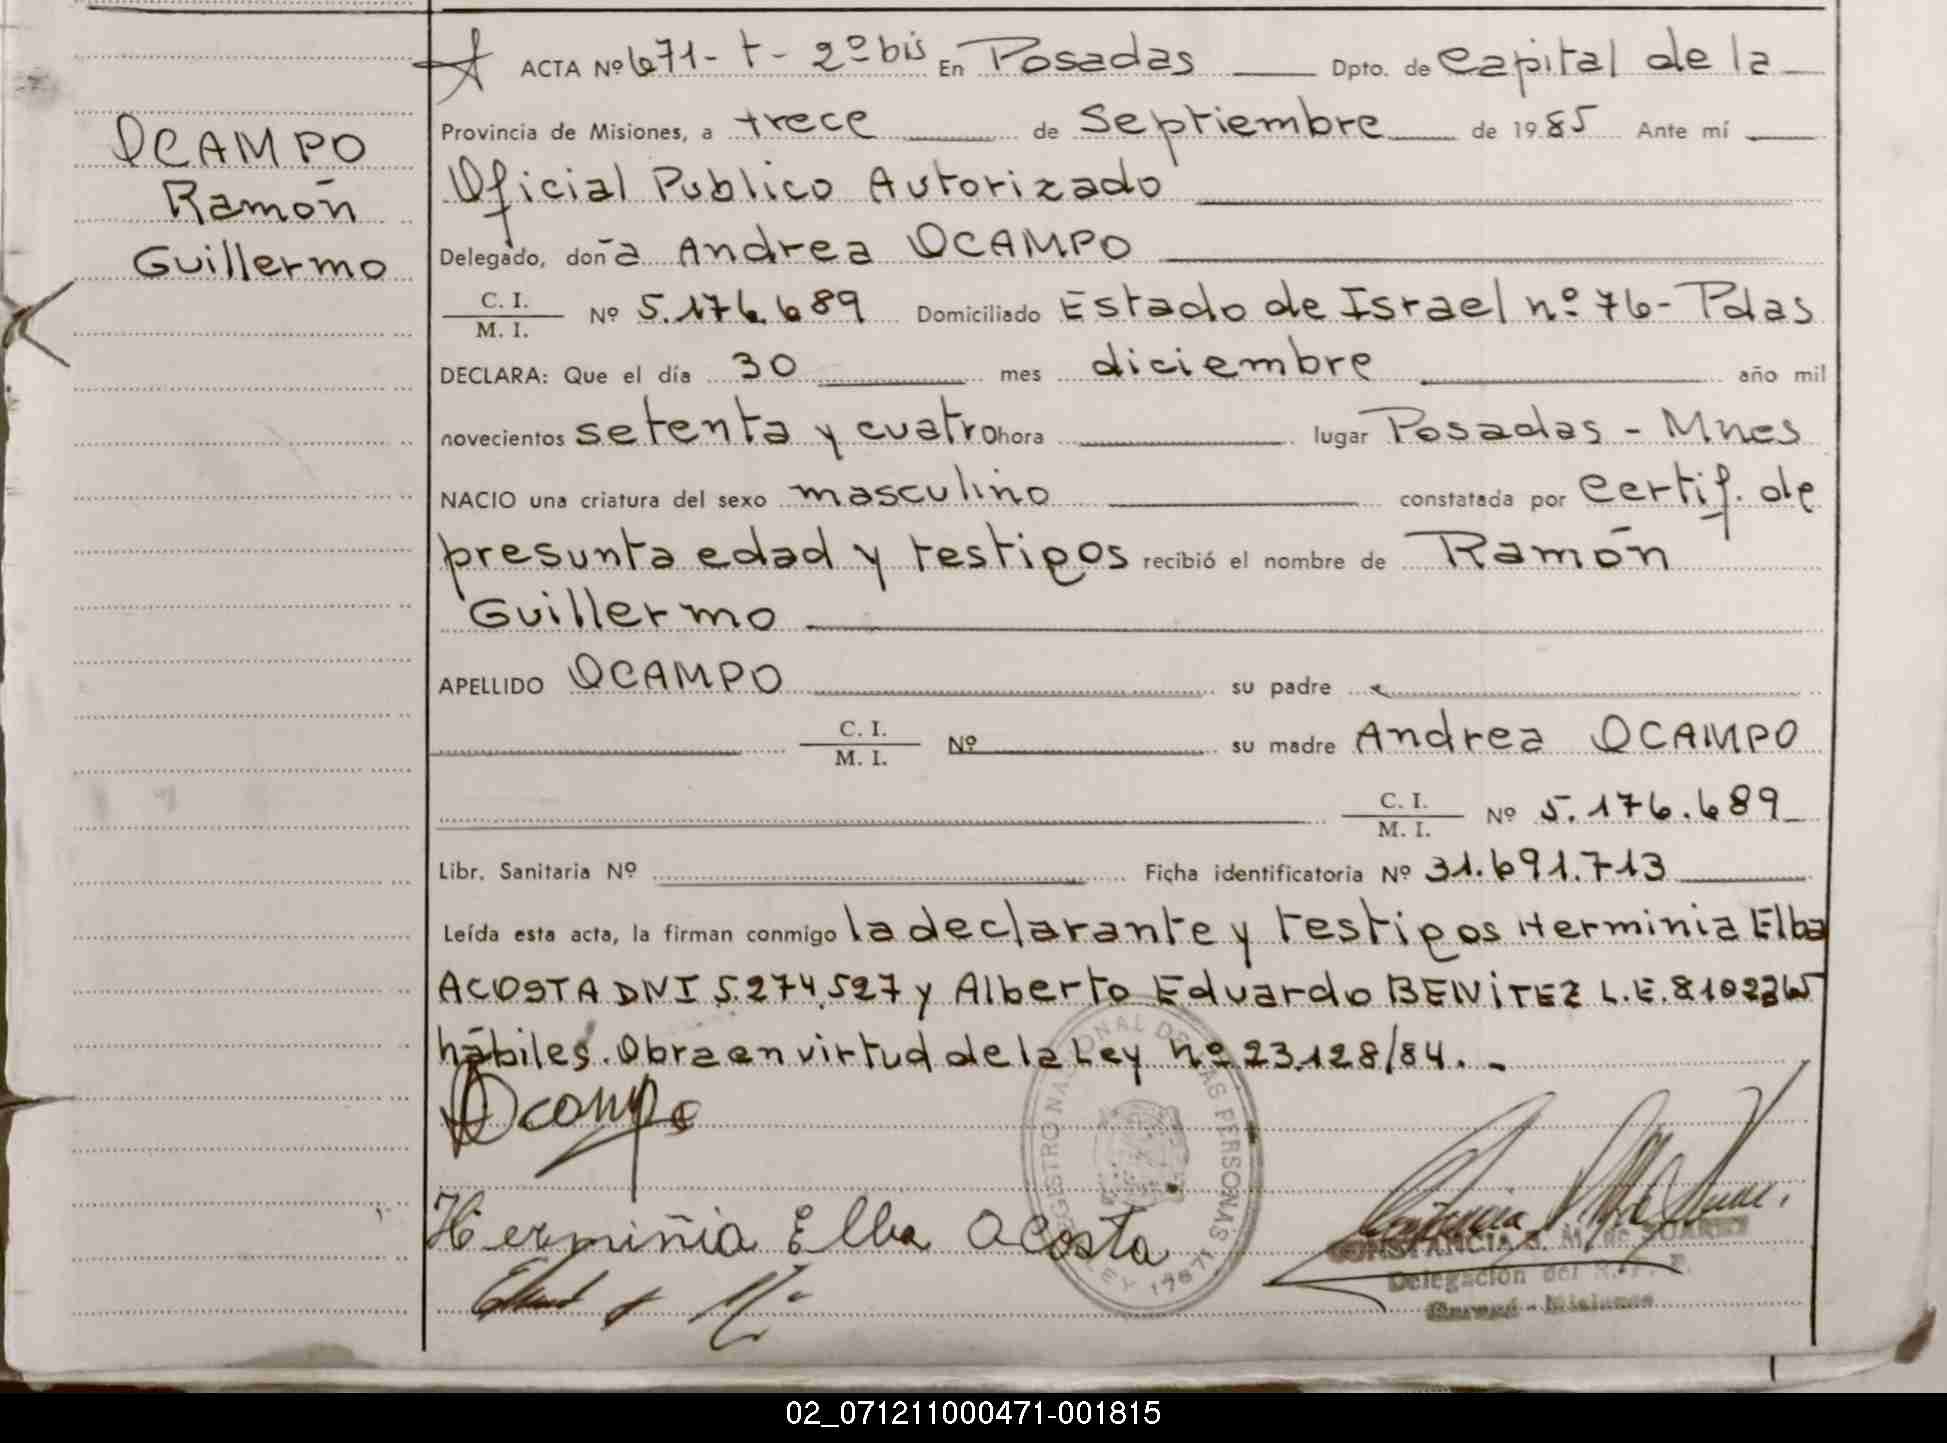 OCAMPO
Ramón
Guillermo
ACTA Nº 671-t-2º bis En Posadas Dpto. de Capital de la
Provincia de Misiones, a trece de Septiembre de 1985 Ante mí
Oficial Publico Autorizado
Delegado, doña Andrea OCAMPO
C. I.
M. I. Nº 5.176.689 Domiciliado Estado de Israel nº 76 - Pdas
DECLARA: Que el día 30 mes diciembre año mil
novecientos setenta y cuatro hora lugar Posadas - Mnes
NACIO una criatura del sexo masculino constatada por Certif. de
presunta edad y testigos recibió el nombre de Ramón
Guillermo
APELLIDO OCAMPO su padre
C. I.
M. I. Nº su madre Andrea OCAMPO
C. I.
M. I. Nº 5.176.689
Libr. Sanitaria Nº Ficha identificatoria Nº 31.691.713
Leída esta acta, la firman conmigo la declarante y testigos Herminia Elba
ACOSTA DNI 5.274.527 y Alberto Eduardo BENITEZ L.E.
hábiles. Obra en virtud de la Ley nº 23.128/84.-
Ocampo
Herminia Elba Acosta
REGISTRO NACIONAL DE LAS PERSONAS
LEY 17671
CONSTANCIA S. M. de SUAREZ
Delegación del R. P. P.
02_071211000471-001815